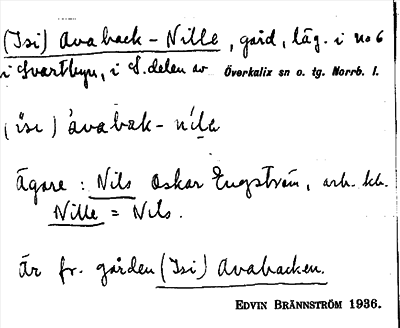 (Isi) Avaback-Nille, gård, läg. i no 6
i Svartbyn, i S. delen av Överkalix sn o. tg. Norrb. l.
(isi) avabak-nila
Ägare: Nils Oskar Engström, arb. kb.
Nille = Nils.
Är fr. gården (Isi) Avabacken.
EDVIN BRÄNNSTRÖM 1936.